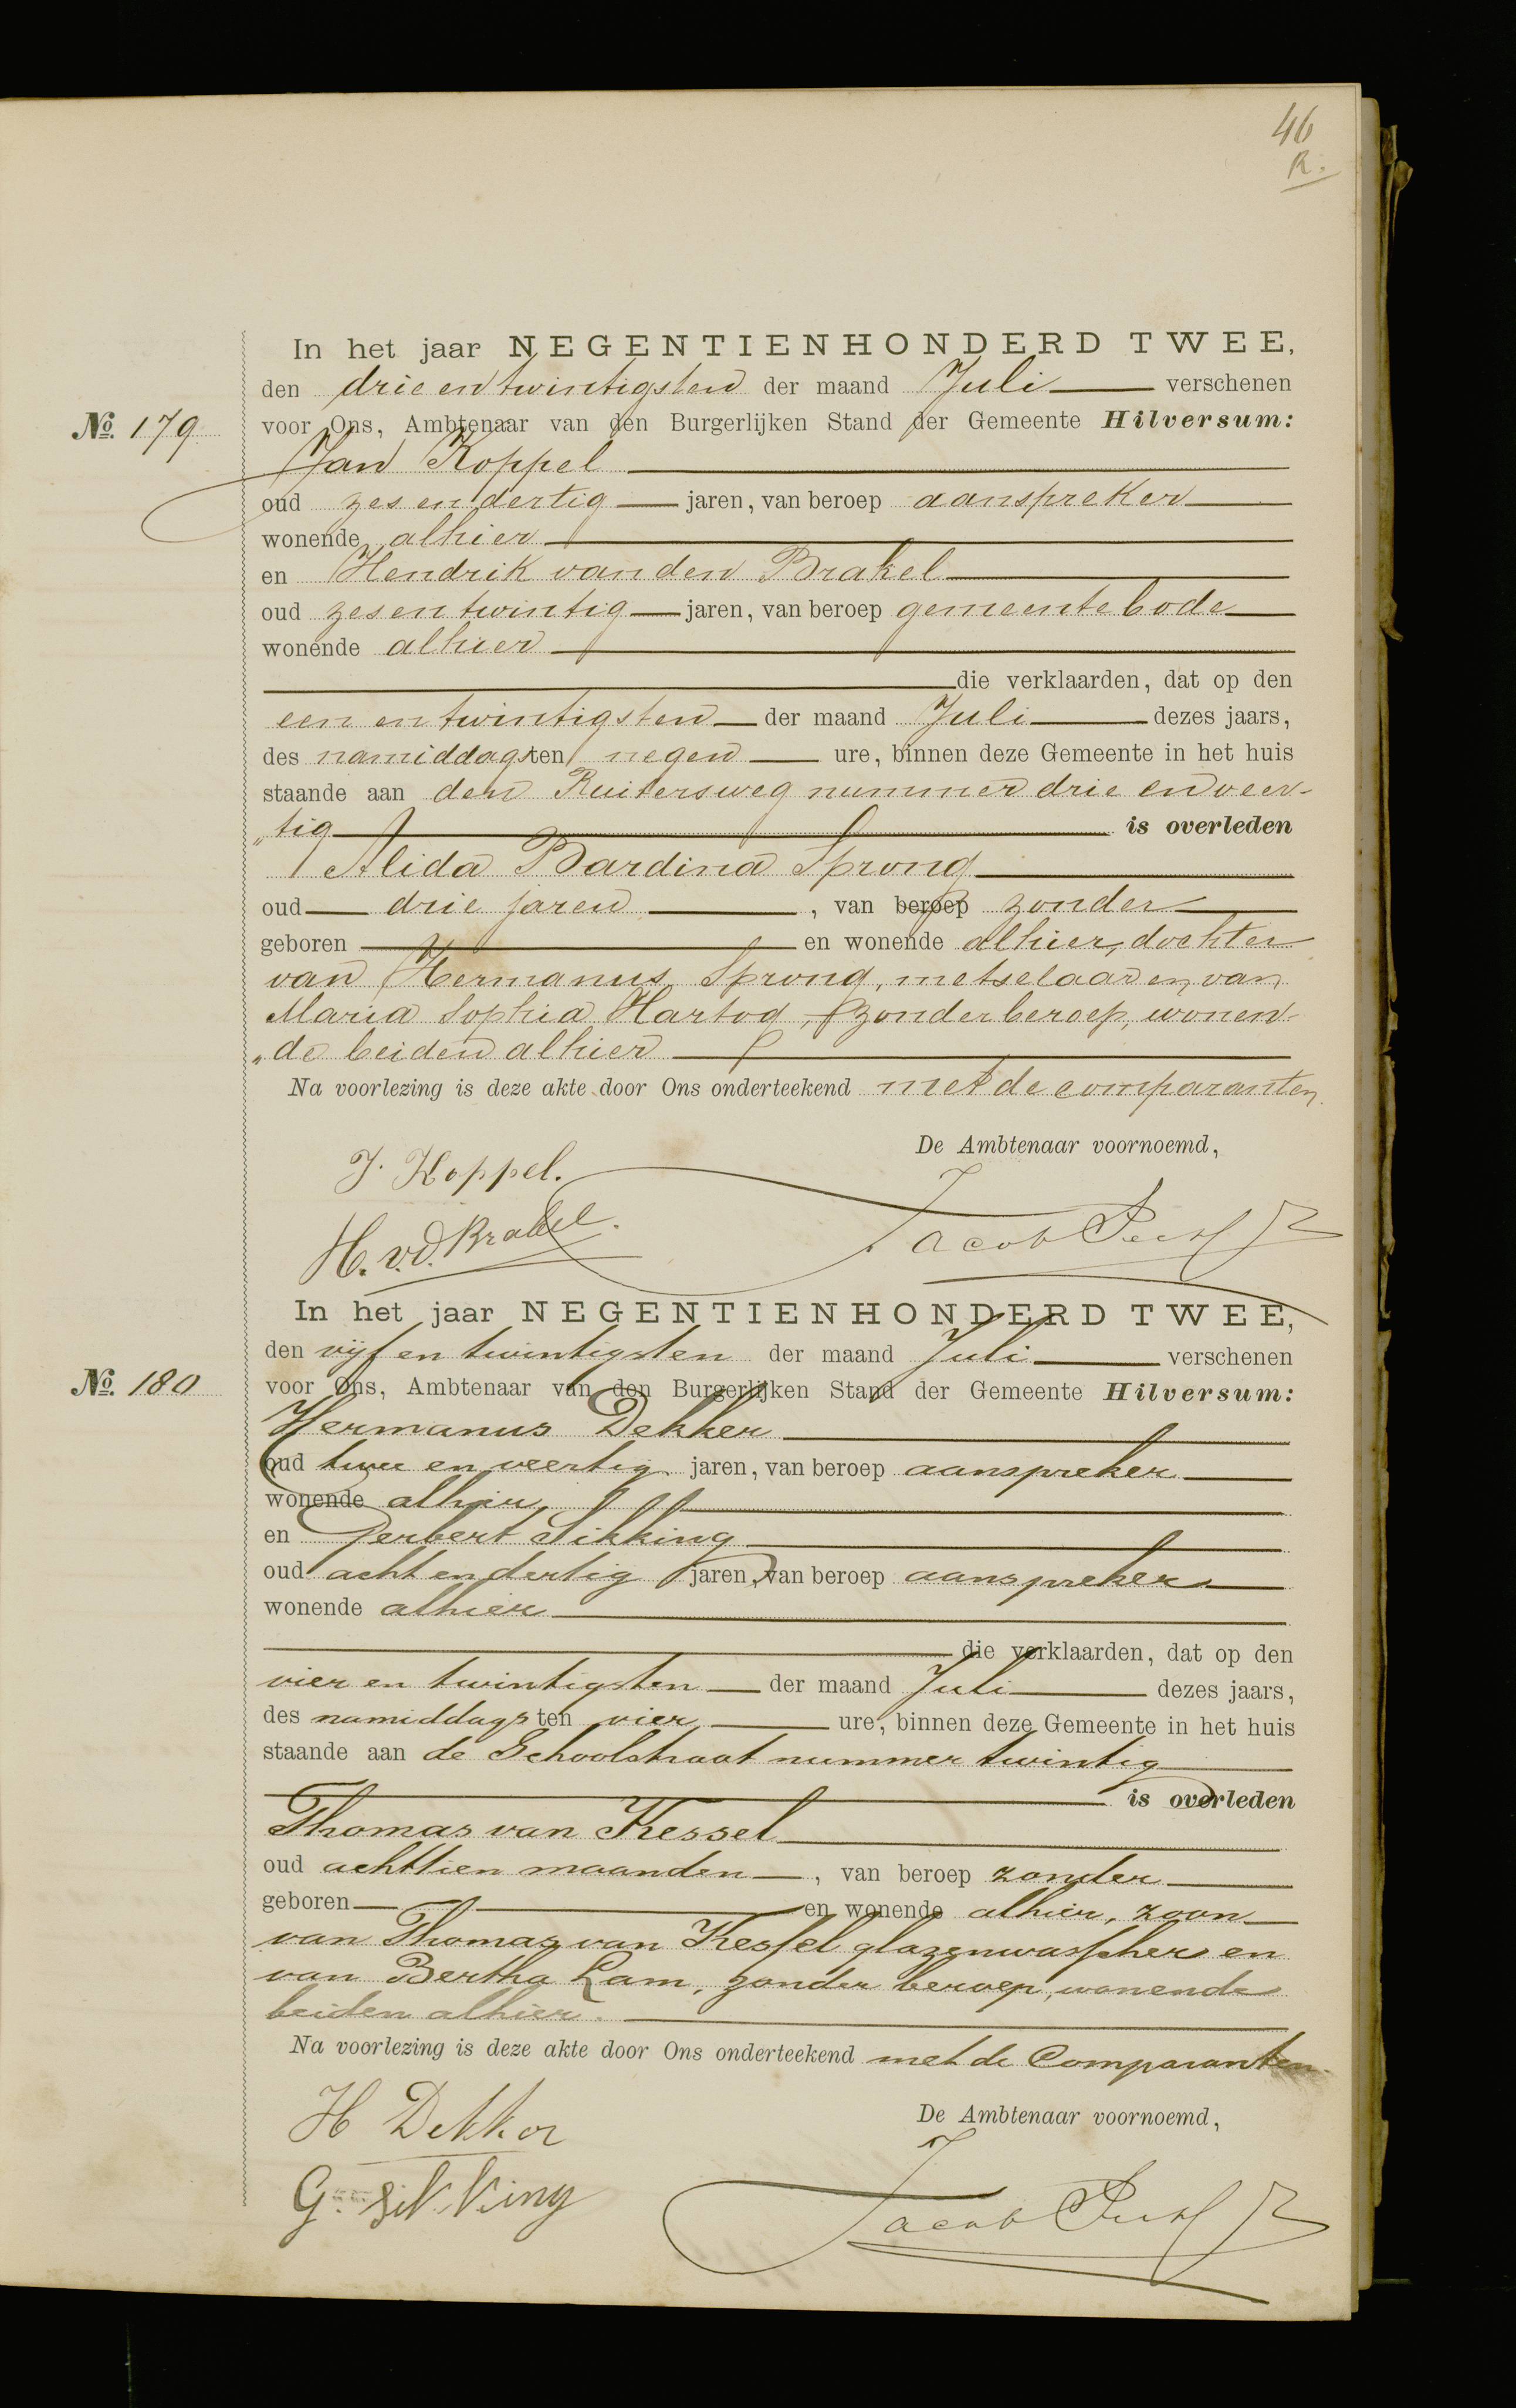 46
R.
In het jaar NEGENTIENHONDERD TWEE,
den drie en twintigsten der maand Juli verschenen
No. 179 voor Ons, Ambtenaar van den Burgerlijken Stand der Gemeente Hilversum:
Jan Koppel
oud zes en dertig jaren, van beroep aanspreker
wonende alhier
en Hendrik van den Brakel
oud zes en twintig jaren, van beroep gemeentebode
wonende alhier
die verklaarden, dat op den
een en twintigsten der maand Juli dezes jaars,
des namiddags ten negen ure, binnen deze Gemeente in het huis
staande aan den Ruitersweg nummer drie en veer-
„tig is overleden
Alida Bardina Sprong
oud drie jaren, van beroep zonder
geboren en wonende alhier, dochter
van Hermanus Sprong, metselaar en van
Maria Sophia Hartog, zonder beroep, wonen-
„de beiden alhier
Na voorlezing is deze akte door Ons onderteekend met de comparanten.
De Ambtenaar voornoemd,
J. Koppel.
H. v.d. Brakel. Jacob
In het jaar NEGENTIENHONDERD TWEE,
den vijf en twintigsten der maand Juli verschenen
No. 180 voor Ons, Ambtenaar van den Burgerlijken Stand der Gemeente Hilversum:
Hermanus Dekker
oud twee en veertig jaren, van beroep aanspreker
wonende alhier
en Gerbert Sikking
oud acht en dertig jaren, van beroep aanspreker
wonende alhier
die verklaarden, dat op den
vier en twintigsten der maand Juli dezes jaars,
des namiddags ten vier ure, binnen deze Gemeente in het huis
staande aan de Schoolstraat nummer twintig
is overleden
Thomas van Kessel
oud achttien maanden, van beroep zonder
geboren en wonende alhier, zoon
van Thomas van Kessel glazenwasscher en
van Bertha Lam, zonder beroep, wonende
beiden alhier.
Na voorlezing is deze akte door Ons onderteekend met de Comparanten
De Ambtenaar voornoemd,
H Dekker
G. Sikking Jacob